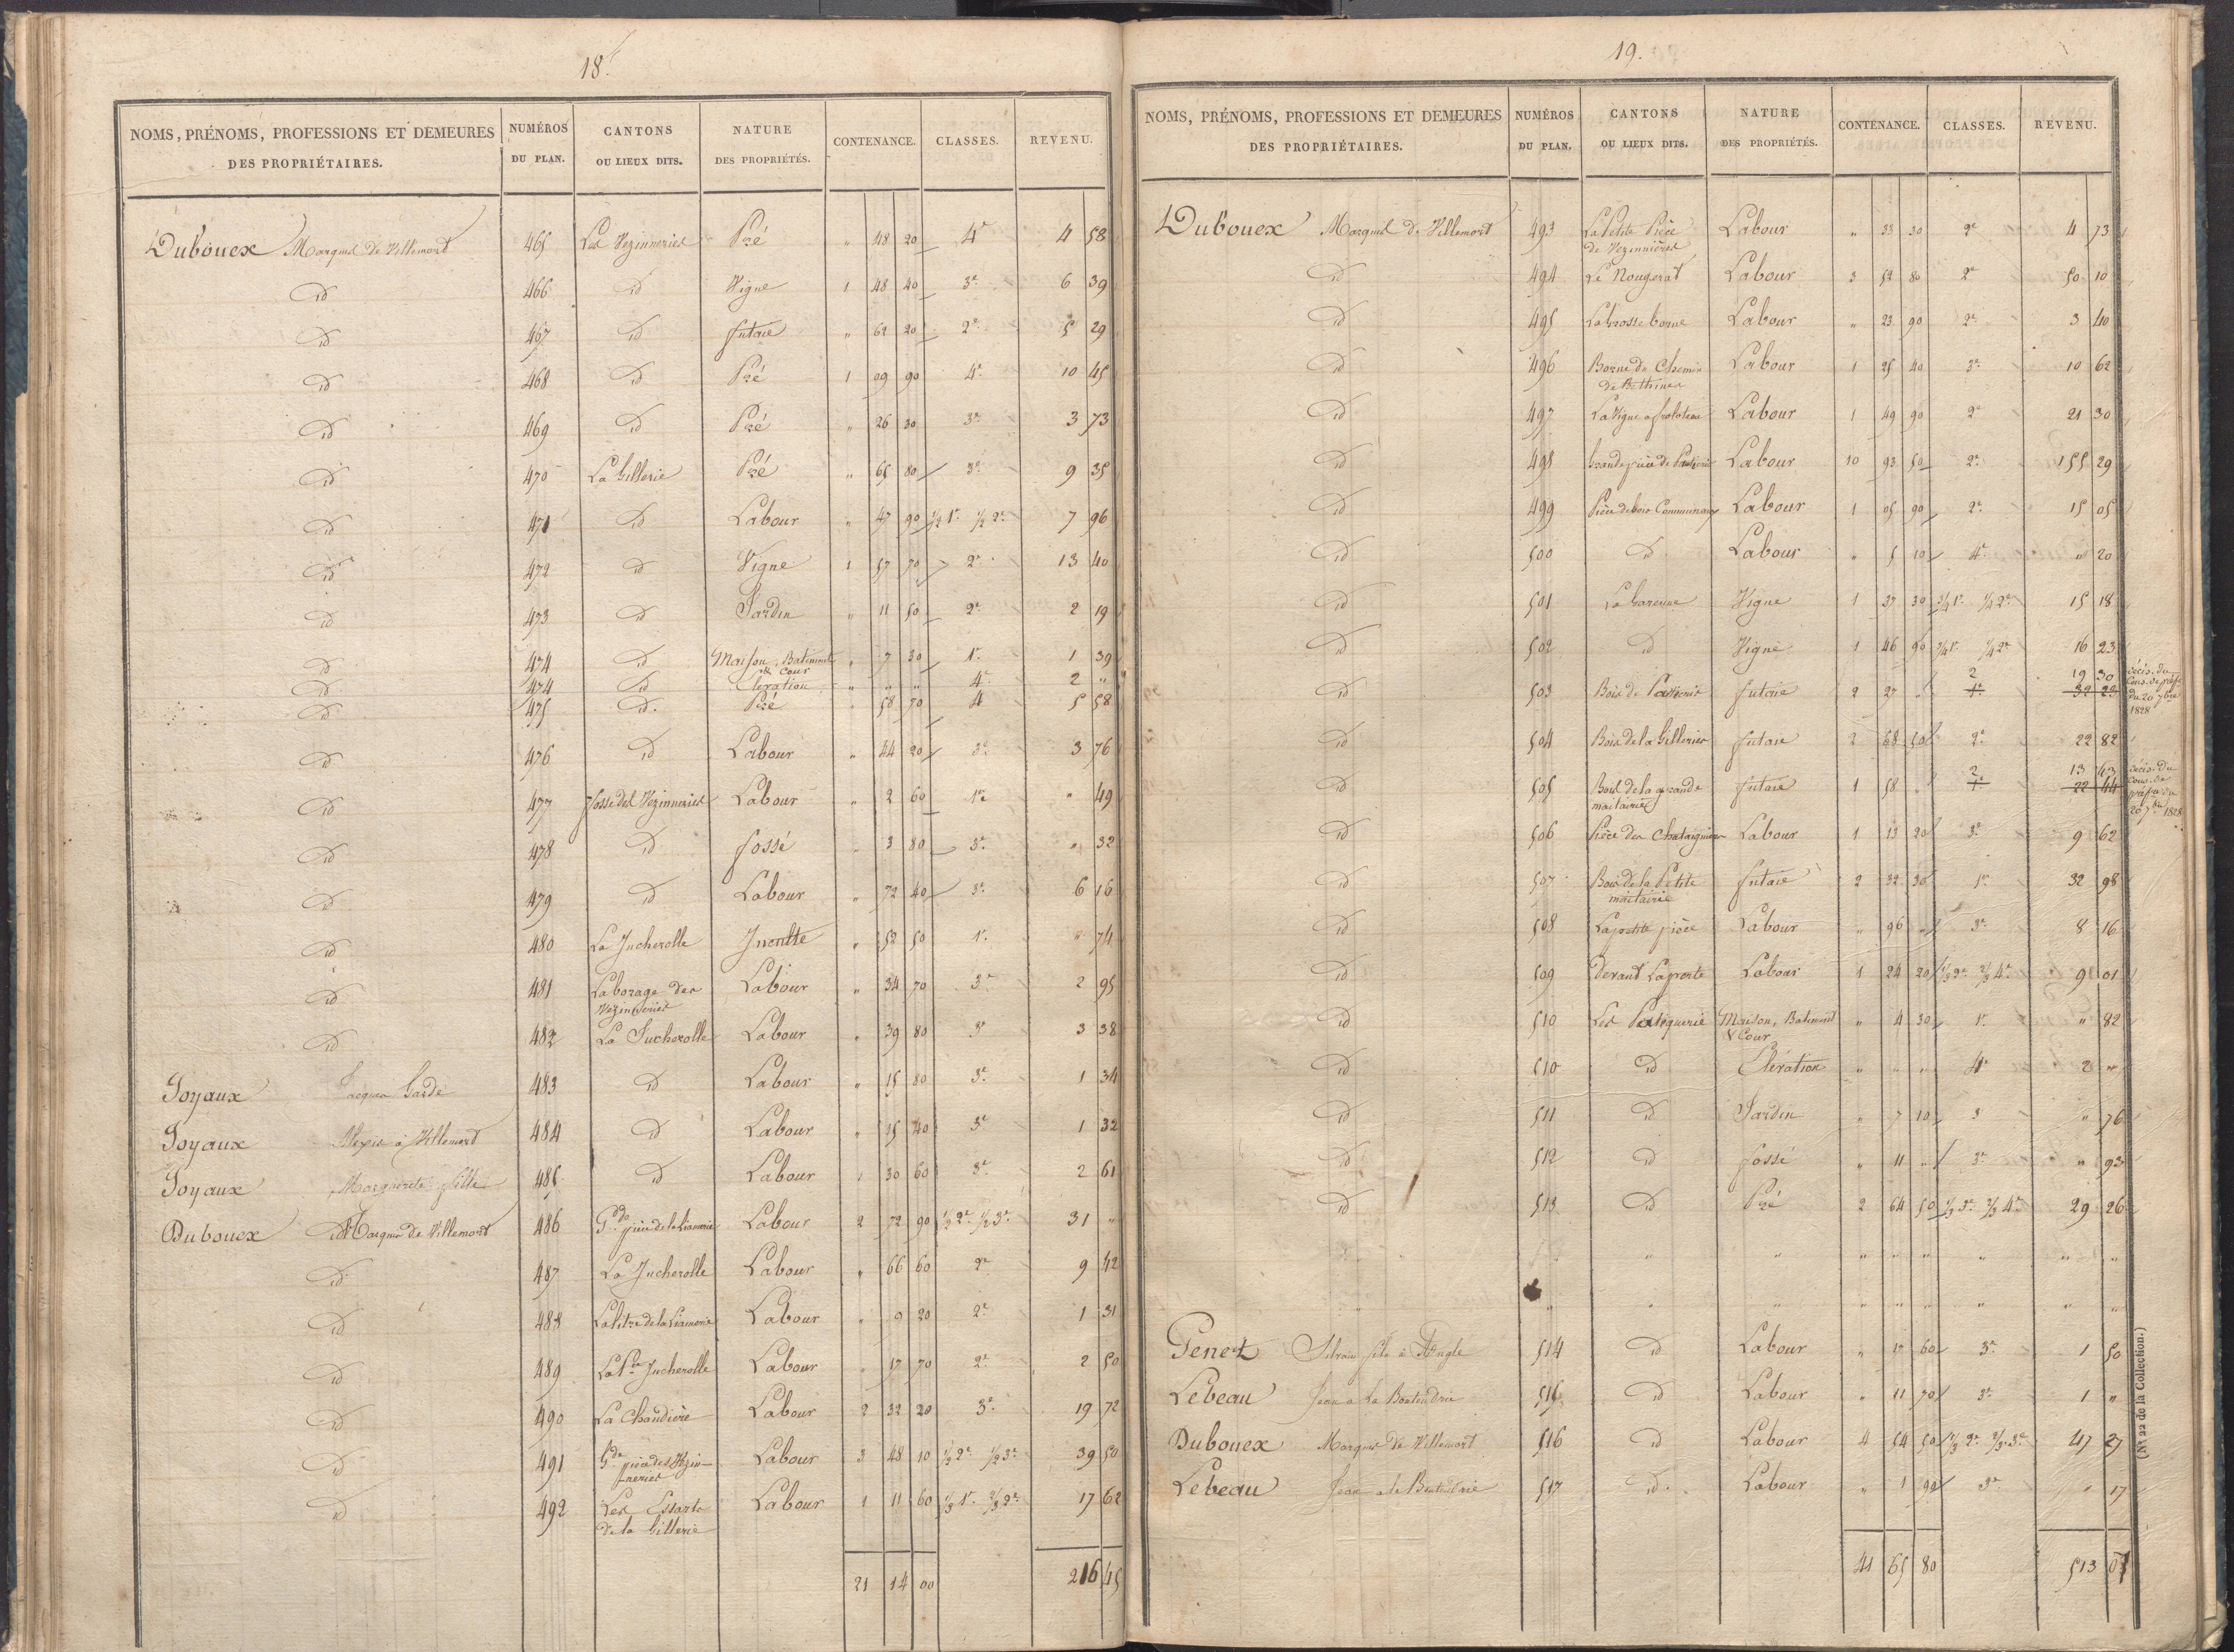 18.
NOMS, PRÉNOMS, PROFESSIONS ET DEMEURES DES PROPRIÉTAIRES. NUMÉROS DU PLAN. CANTONS OU LIEUX DITS. NATURE DES PROPRIÉTÉS. CONTENANCE. CLASSES. REVENU.
Dubouex Marquis de Villemort 465 Les Vezinneries Pré " 48 20 4e 4 58
id 466 id Vigne 1 48 40 3e 6 39
id 467 id futaie " 62 20 2e 5 29
id 468 id Pré 1 09 90 4e 10 45
id 469 id Pré " 26 30 3e 3 73
id 470 La Gillerie Pré " 65 80 3e 9 35
id 471 id Labour " 47 90 1/2 1e 1/2 2e 7 96
id 472 id Vigne 1 57 70 2e 13 40
id 473 id Jardin " 11 50 2e 2 19
id 474 id Maison, Batiment & cour " 7 30 1e 1 39
id 474 id Elevation " " " 4e 2 "
id 475 id Pré " 58 70 4 5 58
id 476 id Labour " 44 20 3e 3 76
id 477 fosse des Vezinneries Labour " 2 60 1re " 49
id 478 id fossé " 3 80 3e " 32
id 479 id Labour " 72 40 3e 6 16
id 480 La Jucherolle Inculte " 52 50 1e " 74
id 481 Laborage des Vezinneries Labour " 34 70 3e 2 95
id 482 La Jucherolle Labour " 39 80 3e 3 38
Joyaux Jacques Garde 483 id Labour " 15 80 3e 1 34
Joyaux Alexis à Villemort 484 id Labour " 15 40 3e 1 32
Joyaux Marguerite fille 485 id Labour " 30 60 3e 2 61
Dubouex Marquis de Villemort 486 Gde pièce de la Liamerie Labour 2 72 90 1/2 2e 1/2 3e 31 "
id 487 La Jucherolle Labour " 66 60 2e 9 42
id 488 La Ptre de la Liamerie Labour " 9 20 2e 1 31
id 489 La Pte Jucherolle Labour " 17 70 2e 2 50
id 490 La Chaudiere Labour 2 32 20 3e 19 72
id 491 Gde pièce des Vezin-neries Labour 3 48 10 1/2 2e 1/2 3e 39 50
id 492 Les Essarts de la Gillerie Labour 1 11 60 1/3 1e 2/3 2e 17 62
21 14 00 216 45
19.
NOMS, PRÉNOMS, PROFESSIONS ET DEMEURES DES PROPRIÉTAIRES. NUMÉROS DU PLAN. CANTONS OU LIEUX DITS. NATURE DES PROPRIÉTÉS. CONTENANCE. CLASSES. REVENU.
Dubouex Marquis de Villemort 493 La Petite Pièce de Vezinnières Labour " 33 30 2e 4 73
id 494 Le Nougerat Labour 3 52 80 2e 50 10
id 495 La Grosse borne Labour " 23 90 2e 3 40
id 496 Borne du Chemin de Bethines Labour 1 25 40 3e 10 62
id 497 La Vigne Labour 1 49 90 2e 21 30
id 498 Grande pièce de Labour 10 93 50 2e 155 29
id 499 Pièce de bois Communaux Labour 1 05 90 2e 15 05
id 500 id Labour " 5 10 4e " 20
id 501 La Garenne Vigne 1 37 30 3/4 1e 1/4 2e 15 18
id 502 id Vigne 1 46 90 3/4 1e 1/4 2e 16 23
id 503 Bois de futaie 2 27 " 2 1e 19 30 32 23 décis. du Cons. de préfre du 20 7bre 1828
id 504 Bois de la Gillerie futaie 2 68 50 2e 22 82
id 505 Bois de la grande maitairie futaie 1 58 " 2 1e 13 43 22 44 décis. du Cons. de préfre du 20 7bre 1828
id 506 Pièce des Chataigniers Labour 1 13 20 3e 9 62
id 507 Bois de la Petite maitairie futaie 2 32 30 1e 32 98
id 508 La petite pièce Labour " 96 " 3e 8 16
id 509 devant La porte Labour 1 24 20 1/3 2e 2/3 4e 9 01
id 510 Les Maison, Batiment & Cour " 4 30 1e " 82
id 510 id Elévation " " " 4e 2 "
id 511 id Jardin " 7 10 3 " 76
id 512 id fossé " 11 " 3e " 93
id 513 id Pré 2 64 50 1/3 3e 2/3 4e 29 26
" " " " " " " " "
" " " " " " " " "
Genet Silvain fils à Angle 514 id Labour " 17 60 3e 1 50
Lebeau Jean à La Boutendrie 515 id Labour " 11 70 3e 1 "
Dubouex Marquis de Villemort 516 id Labour 4 54 50 1/3 2e 2/3 3e 47 27
Lebeau Jean à la Boutendrie 517 id Labour " 1 90 3e " 17
41 65 80 513 07
(No 22 de la Collection.)